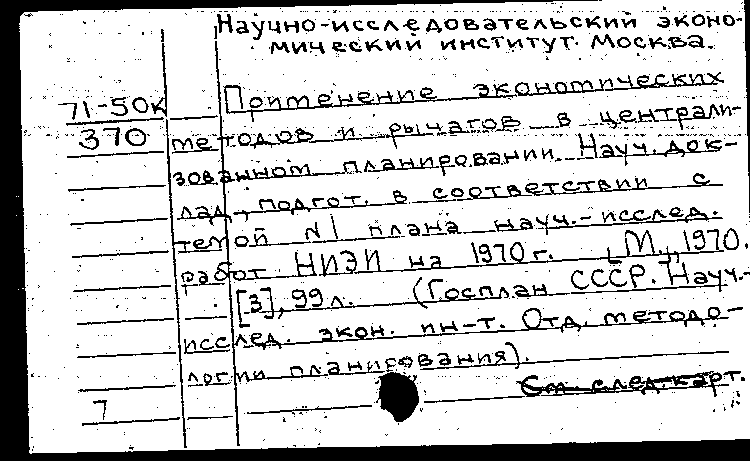 Научно-исследовательский эконо-
мический институт. Москва.
71-50к Применение экономических
370 методов и рычагов в централи-
зованном планировании. Науч. док-
лад, подгот. в соответствии с
темой N1 плана науч.-исслед.
работ НИЭИ на 1970 г. М., 1970.
[3], 99 л. (Госплан СССР. Науч.-
исслед. экон. ин-т. Отд. методо-
логии планирования).
См. след. карт.
7